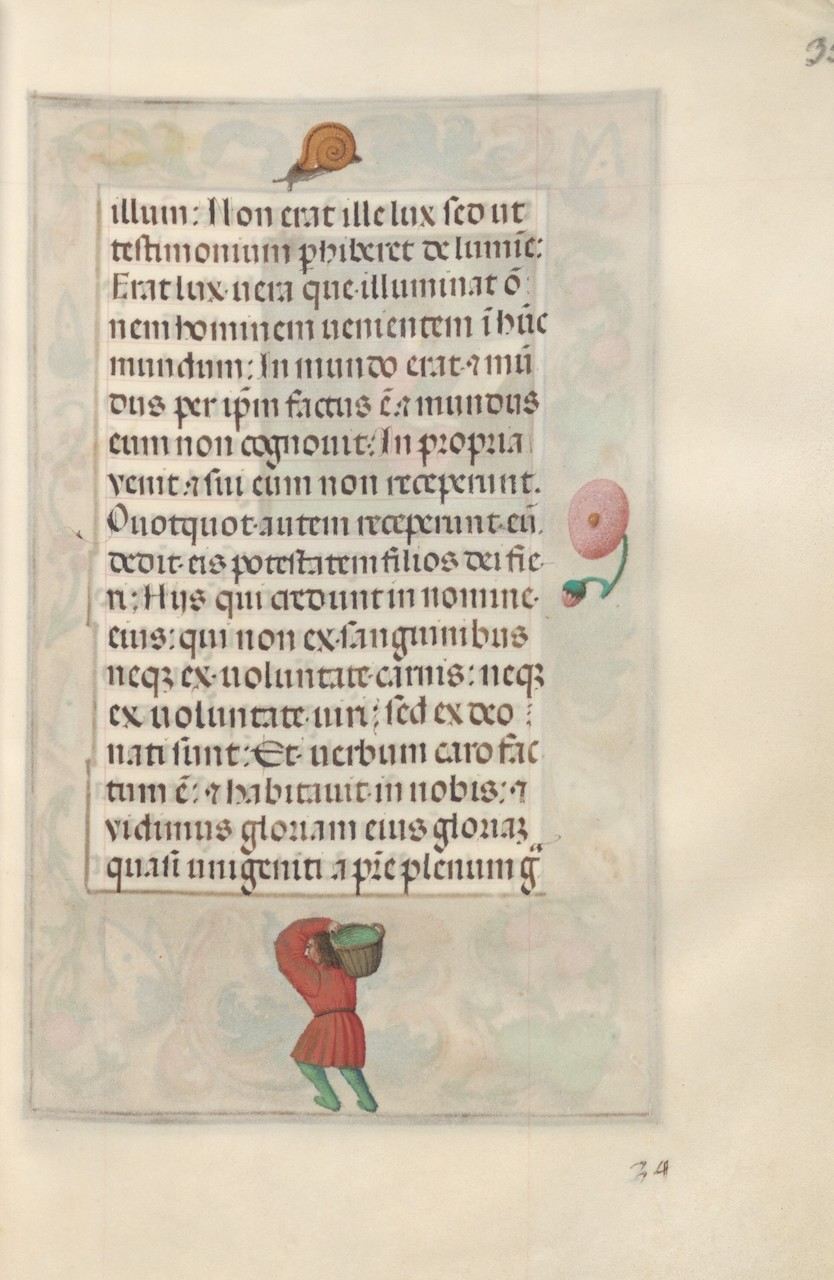 35
illum: Non erat ille lux sed ut
testimonium ꝑhiberet de lumīe:
Erat lux uera que illuminat ō
nem hominem uenientem ī hūc
mundum: In mundo erat ⁊ mū
dus per ip̄m factus ē: ⁊ mundus
eum non cognouit: In propria
venit ⁊ sui eum non receperunt.
Quotquot autem receperunt eū
dedit eis potestatem filios dei fie
ri: Hijs qui credunt in nomine
eius: qui non ex sanguinibus
neqꝫ ex uoluntate carnis: neqꝫ
ex uoluntate uiri; sed ex deo :
nati sunt: Et uerbum caro fac
tum ē: ⁊ habitauit in nobis: ⁊
vidimus gloriam eius gloriaꝫ
quasi unigeniti a pr̄e plenum gͣ
34